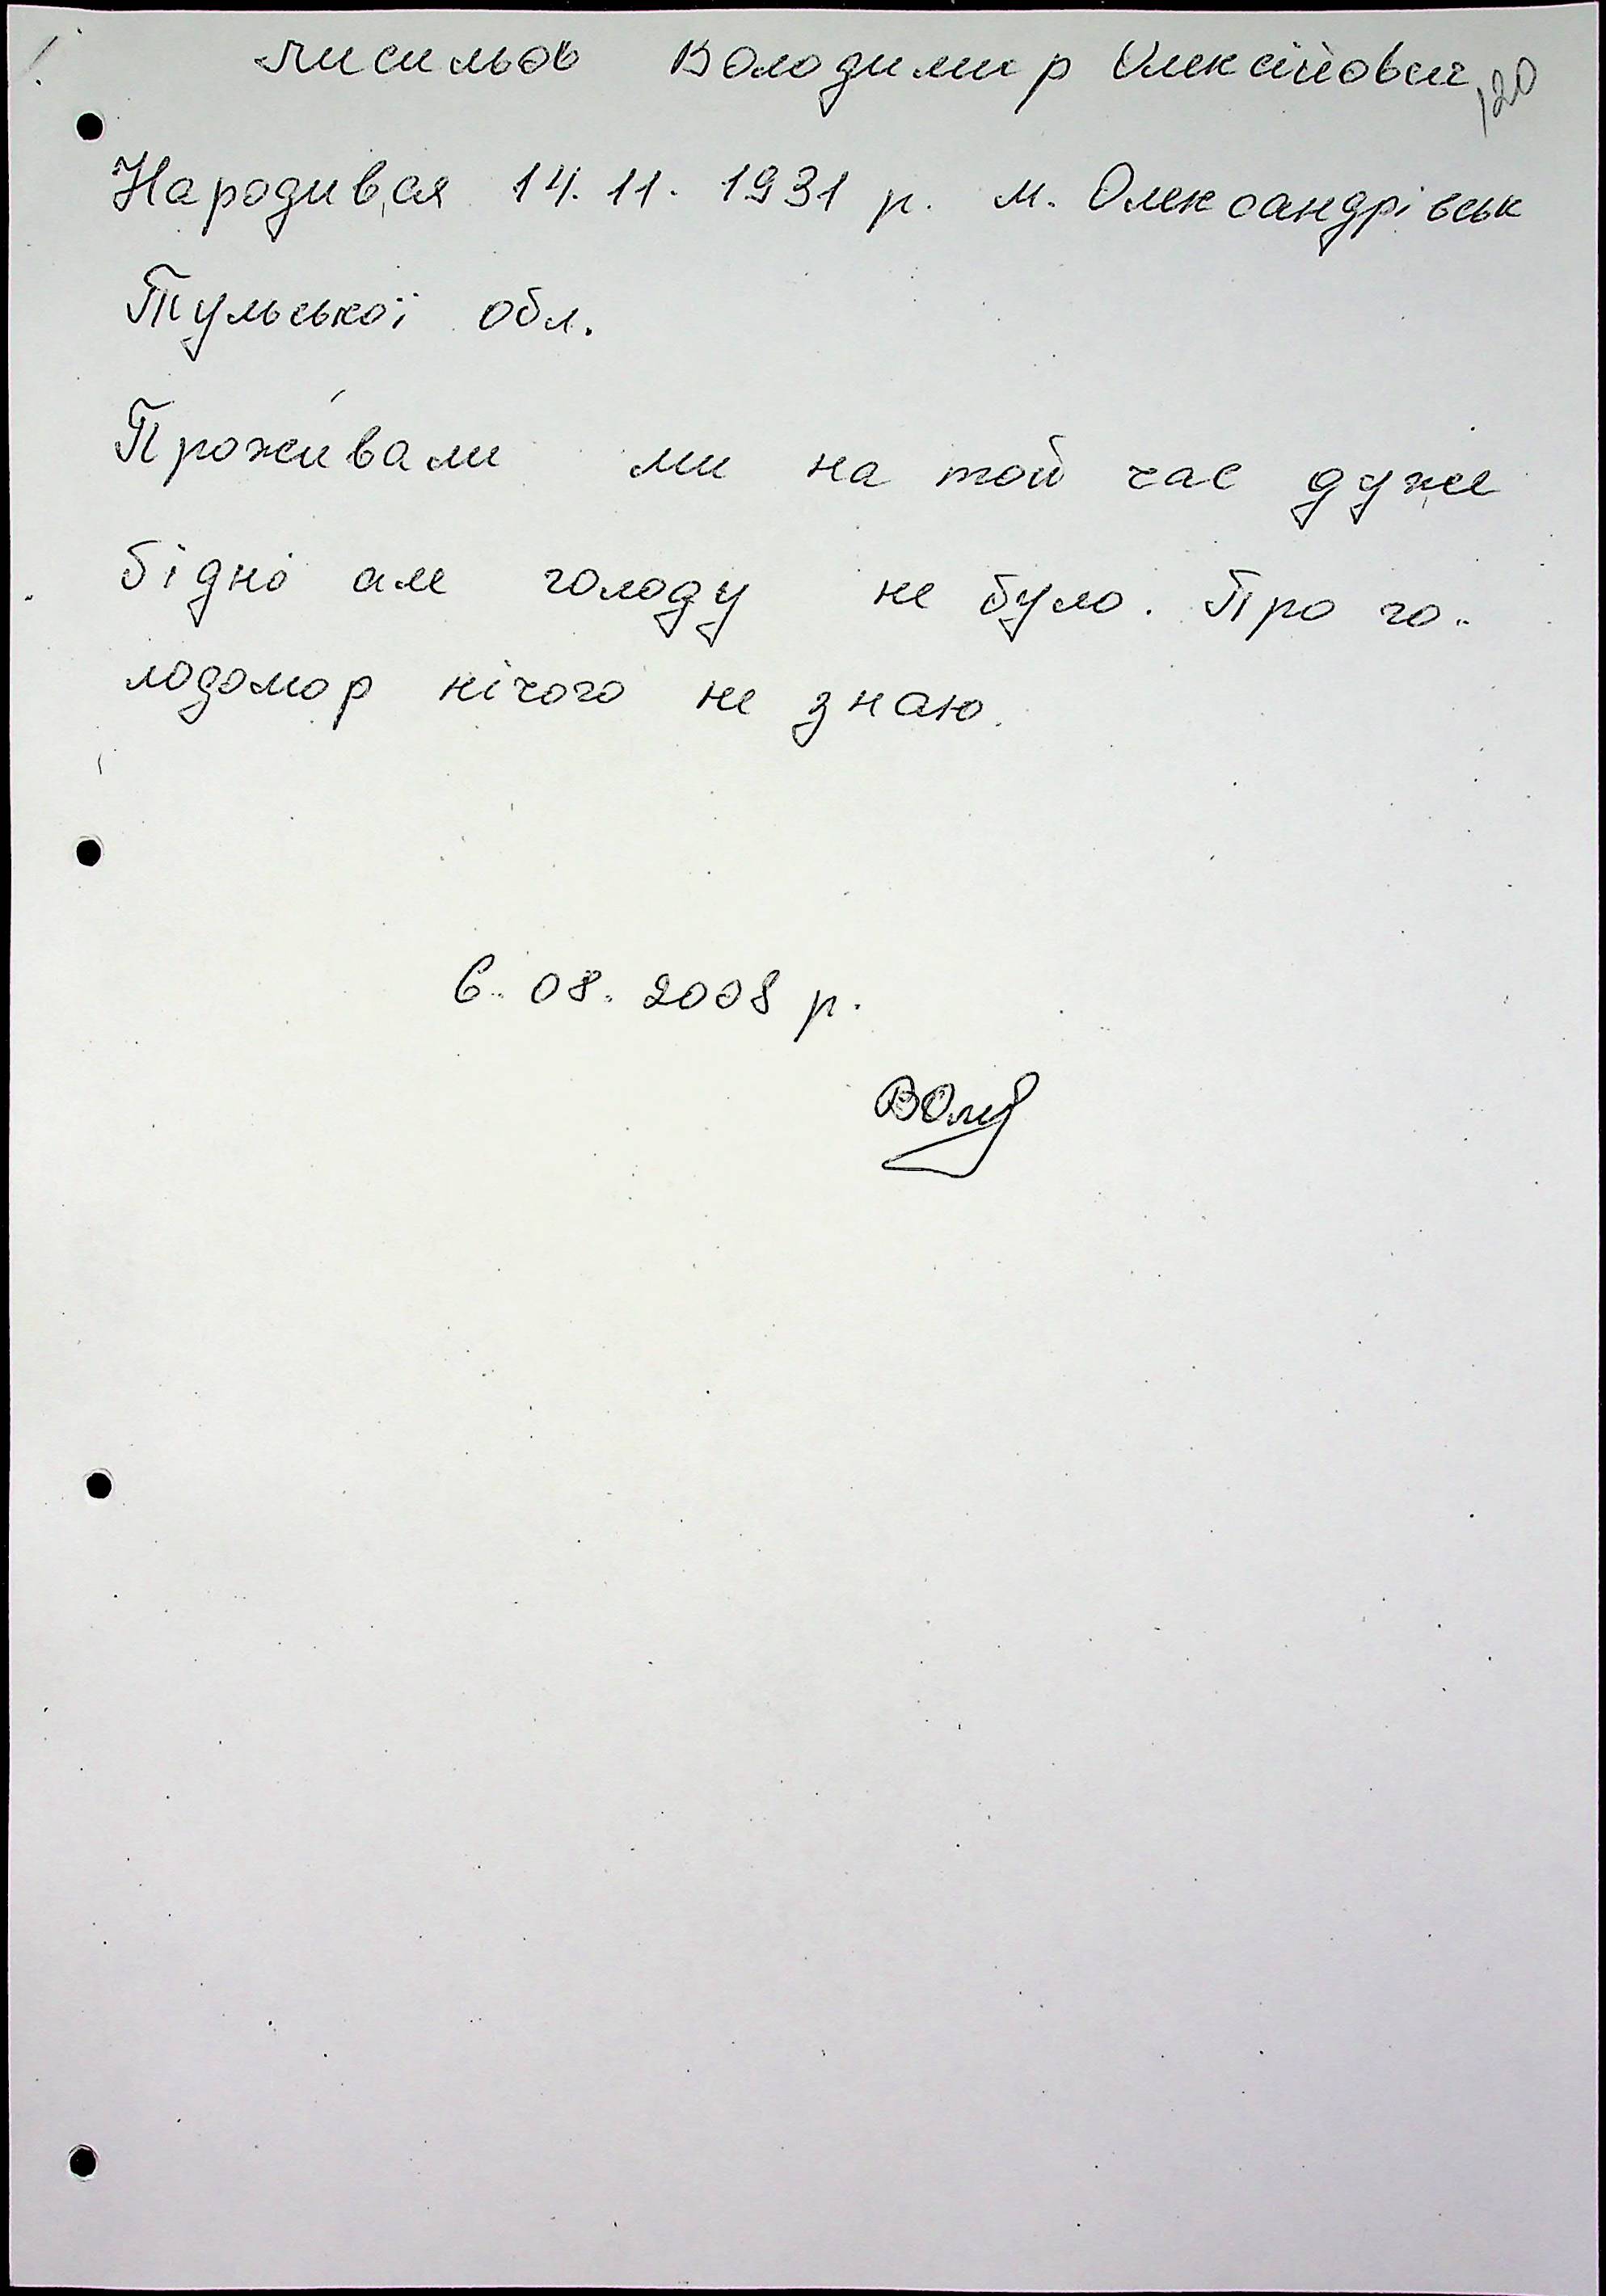 Лисильов Володимир Олексійович
120
Народився 14. 11. 1931 р. м. Олександрівськ
Тульської обл.
Проживали ми на той час дуже
бідно але голоду не було. Про го-
лодомор нічого не знаю.
6. 08. 2008 р.